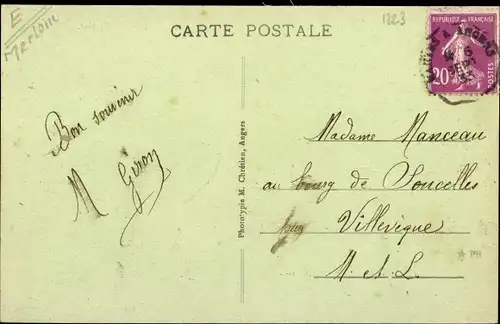 E
Merlou
1223
CARTE POSTALE
REPUBLIQUE FRANÇAISE
20
POSTES
ANGERS
Bon souvenir
M Giron
Phototypie M. Chrétien, Angers
Madame Manceau
au bourg de Soucelles
par Villevêque
M. et L.